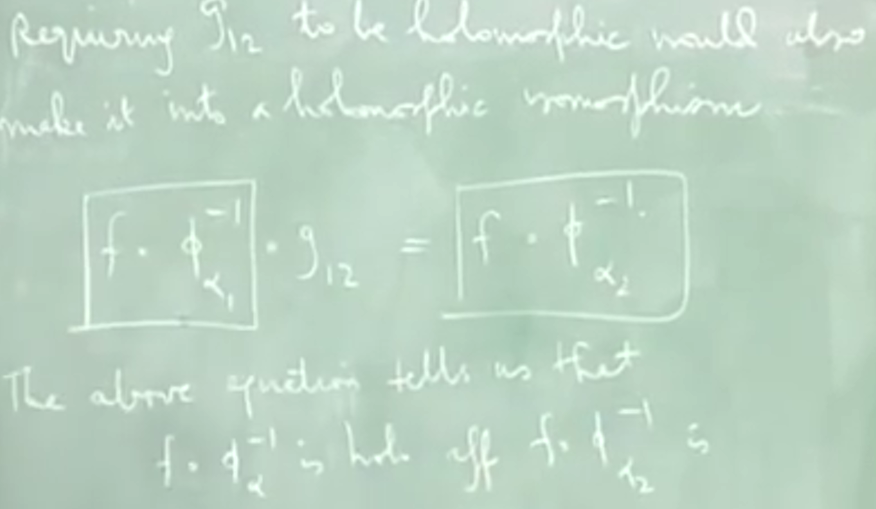 Requiring g₁₂ to be holomorphic would also
make it into a holomorphic isomorphism
f ∘ ϕ_{α₁}^{-1} ∘ g₁₂ = f ∘ ϕ_{α₂}^{-1}
The above equation tells us that
f ∘ ϕ_α^{-1} is holo iff f ∘ ϕ_{α₂}^{-1} is